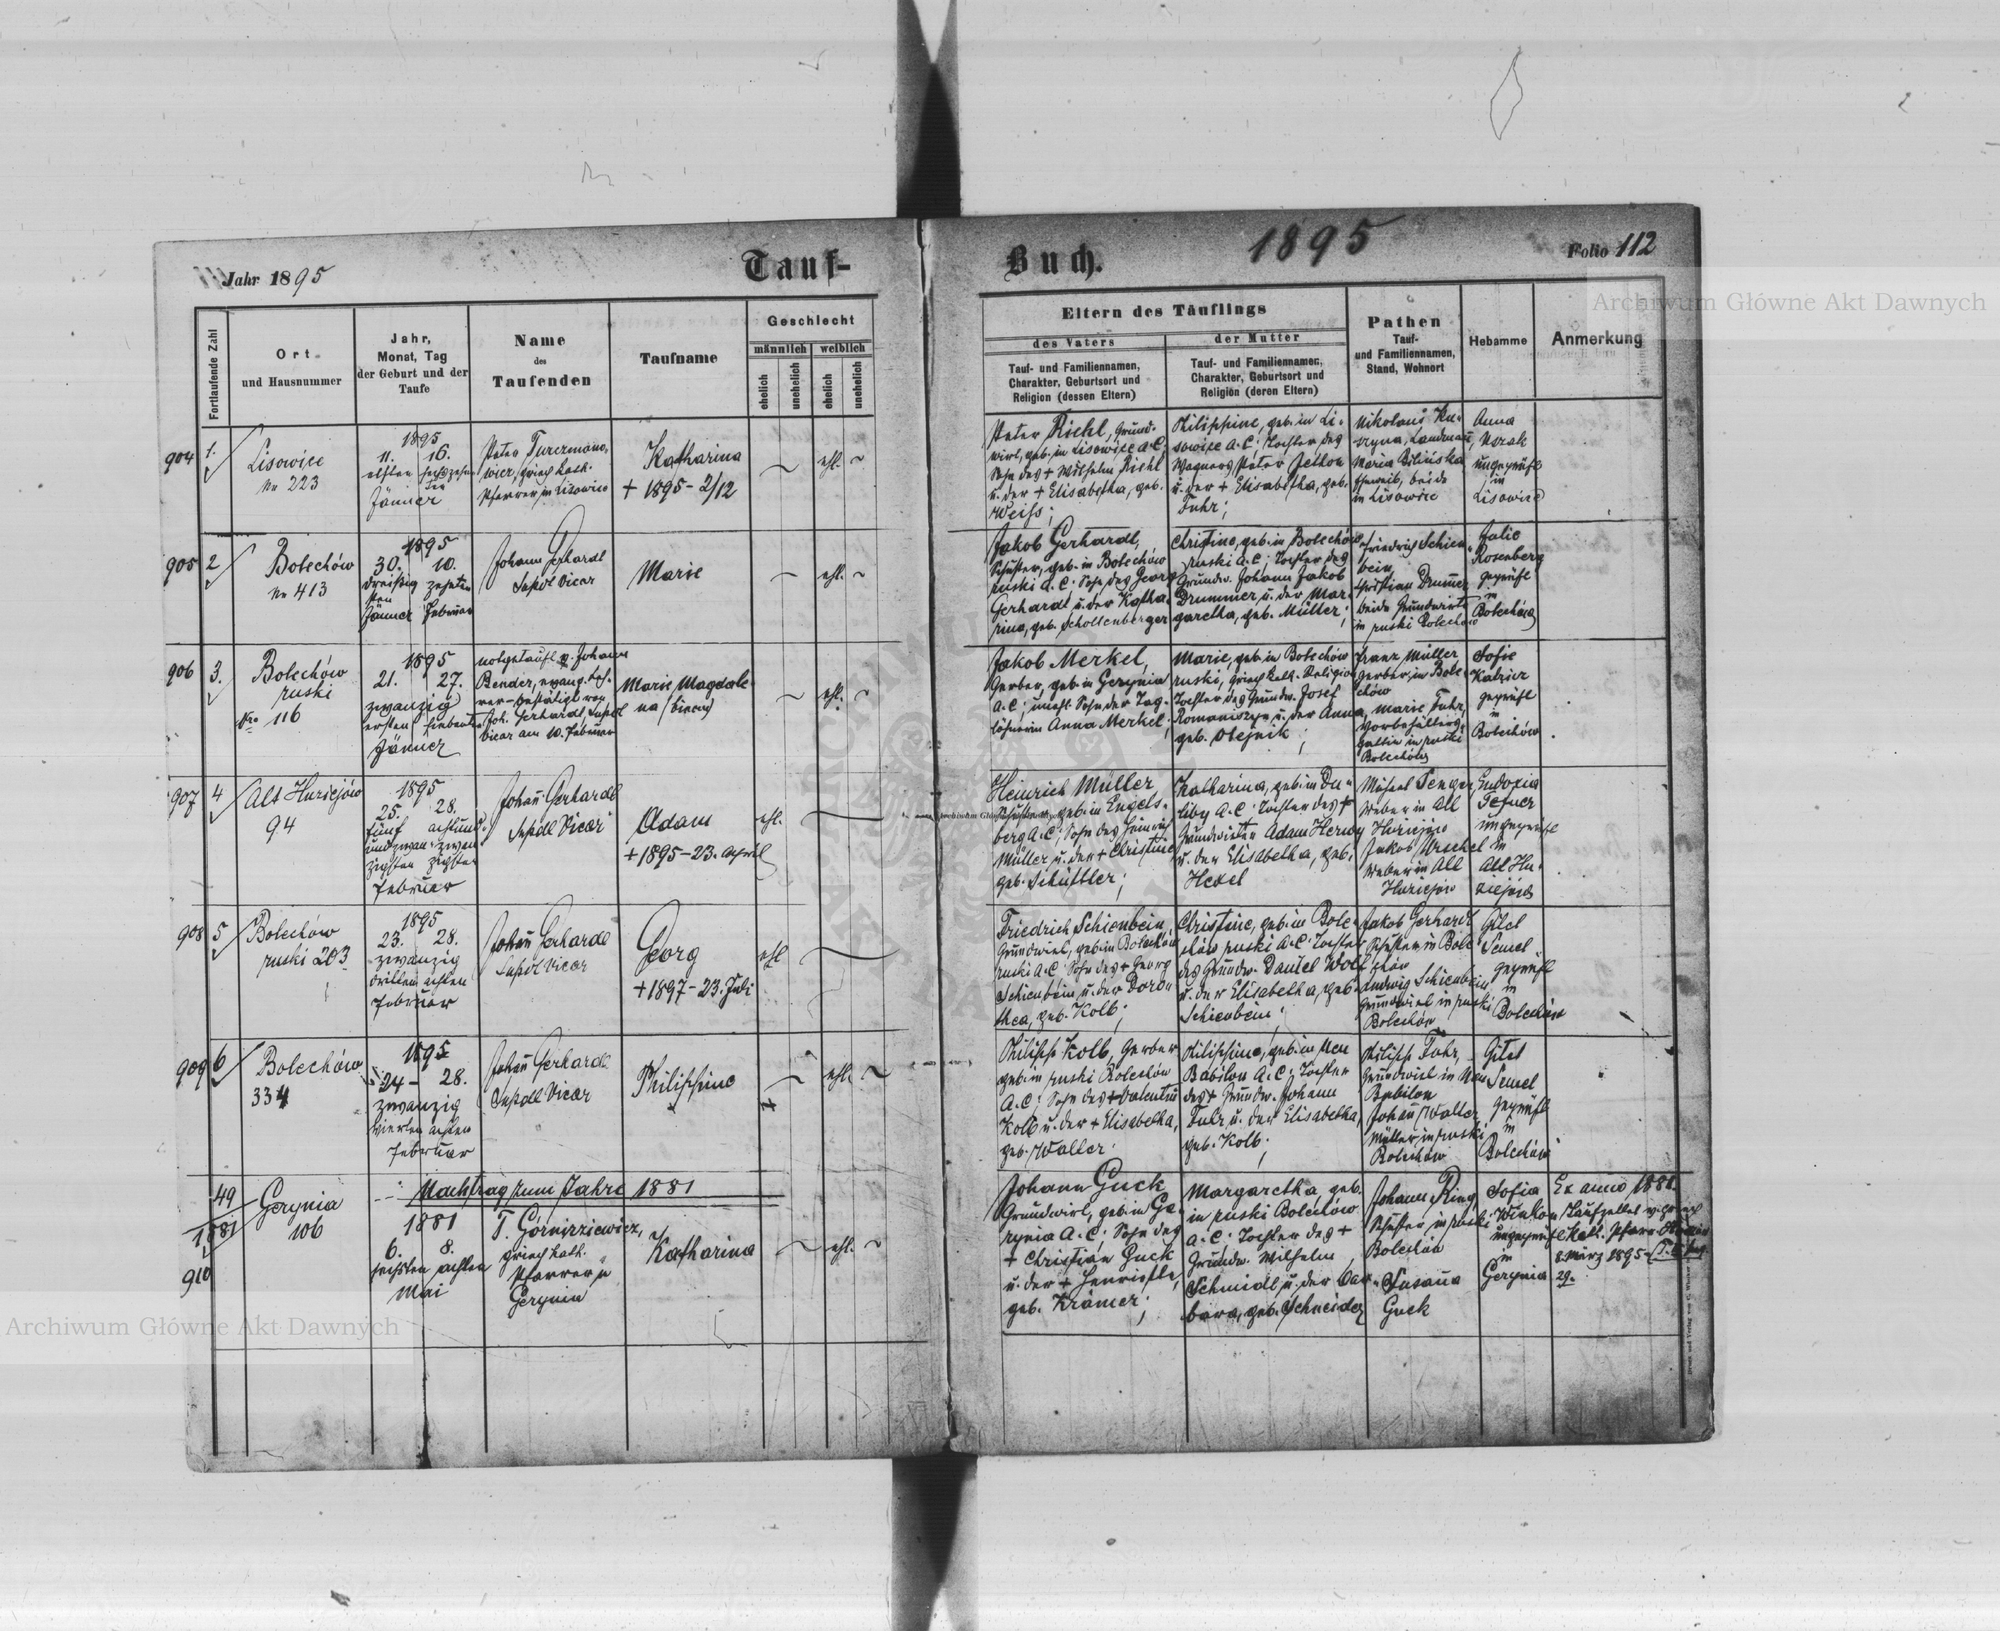 Jahr 1895
Tauf-
Buch.
1895
Folio 112
Archiwum Główne Akt Dawnych
Fortlaufende Zahl
Ort
und Hausnummer
Jahr,
Monat, Tag
der Geburt und der
Taufe
Name
des
Taufenden
Taufname
Geschlecht
männlich
weiblich
ehelich
unehelich
ehelich
unehelich
Eltern des Täuflings
des Vaters
der Mutter
Tauf- und Familiennamen,
Charakter, Geburtsort und
Religion (dessen Eltern)
Tauf- und Familiennamen,
Charakter, Geburtsort und
Religion (deren Eltern)
Pathen
Tauf-
und Familiennamen,
Stand, Wohnort
Hebamme
Anmerkung
904
1.
Lisowice
Nr 223
1895
11. 16.
elften
Jänner
Peter
griech. kath.
Pfarrer in Lisowice
Katharina
+ 1895 - 2/12
ehl.
Peter Riehl, Grund-
wirt, geb. in Lisowice A.C.
Sohn des + Wilhelm Riehl
u. der + Elisabetha, geb.
Weiss;
Philippine, geb. in Li-
sowice A.C; Tochter des
Wagners Peter Jetton
u. der + Elisabetha, geb.
Fuhr;
Maria
beide
in Lisowice
Anna
ungeprüft
in
Lisowice
905
2
Bolechów
Nr 413
1895
30. 10.
dreißig zehnten
sten
Jänner Februar
Johann Gerhardt
Supdl Vicar
Marie
ehl.
Jakob Gerhardt,
Schuster, geb. in Bolechów
ruski A.C. Sohn des Georg
Gerhardt u. der Katha-
rina, geb. Schollenberger
Christine, geb. in Bolechów
ruski A.C; Tochter des
Grundw. Johann Jakob
Drummer u. der Mar-
garetha, geb. Müller;
Friedrich Schien-
bein,
Christian Drummer
beide Grundwirte
in ruski Bolechów
Julie
Rosenberg
geprüft
in
Bolechów
906
3.
Bolechów
ruski
Nro 116
1895
21. 27.
zwanzig
ersten siebenten
Jänner
notgetauft v. Johann
Bender, evang. Leh-
rer - bestätigt von
Joh. Gerhardt, Supdl
Vicar am 10. Februar
Marie Magdale
na
ehl.
Jakob Merkel,
Gerber, geb. in Gerynia
A.C; unehl. Sohn der Tag-
löhnerin Anna Merkel;
Marie, geb. in Bolechów
ruski, griech. kath. Religion
Tochter des Grundw. Josef
Romaniszyn u. der Anna,
geb. Olejnik;
Franz Müller
Gerber, in Bole-
chów
Marie Fuhr,
gattin in ruski
Bolechów
Sofie
geprüft
in
Bolechów
907
4
Alt Huziejów
94
1895
25. 28.
fünf achtund-
undzwan- zwan-
zigsten zigsten
Februar
Johann Gerhardt
Supdl Vicar
Adam
+ 1895 - 23. April
ehl.
Heinrich Müller
Schuster, geb. in Engels-
berg A.C; Sohn des Heinrich
Müller u. der + Christine
geb. Schüttler;
Katharina, geb. in Du-
liby A.C; Tochter des +
Grundwirten Adam Herwy
u. der Elisabetha, geb.
Hexel
Weber in Alt
Huziejów
Jakob
Weber in Alt
Huziejów
Eudoxia
ungeprüft
in
Alt Hu-
ziejów
908
5
Bolechów
ruski 203
1895
23. 28.
zwanzig
dritten achten
Februar
Johann Gerhardt
Supdl Vicar
Georg
+ 1897 - 23. Juli
ehl
Friedrich Schienbein,
Grundwirt, geb. in Bolechów
ruski A.C; Sohn des + Georg
Schienbein u. der Doro-
thea, geb. Kolb;
Christine, geb. in Bole-
chów ruski A.C; Tochter
des Grundw. Daniel Wolf
u. der Elisabetha, geb.
Schienbein;
Jakob Gerhardt
Schuster in Bole-
chów
Ludwig Schienbein
Grundwirt in ruski
Bolechów
Gitel
Semel
geprüft
in
Bolechów
909
6
Bolechów
334
1895
24 - 28.
zwanzig
vierten achten
Februar
Johann Gerhardt
Supdl Vicar
Philippine
ehl.
Philipp Kolb, Gerber
geb. in ruski Bolechów
A.C; Sohn des + Valentin
Kolb u. der + Elisabetha,
geb. Waller;
Philippine, geb. in Neu
Babilon A.C; Tochter
des + Grundw. Johann
Fuhr, u. der Elisabetha,
geb. Kolb;
Philipp Fuhr,
Grundwirt in Neu
Babilon
Johann Waller
Müller in ruski
Bolechów
Gitel
Semel
geprüft
in
Bolechów
Nachtrag zum Jahre 1881
49
1881
910
Gerynia
106
1881
6. 8.
sechsten achten
Mai
T. Górnirziewicz,
griech. kath.
Pfarrer in
Gerynia
Katharina
ehl.
Johann Guck
Grundwirt, geb. in Ge-
rynia A.C; Sohn des
+ Christian Guck
u. der + Henriette,
geb. Krämer;
Margaretha, geb.
in ruski Bolechów
A.C; Tochter des +
Grundw. Wilhelm
Schmidt, u. der Bar-
bara, geb. Schneider
Johann Ring
Schuster in ruski
Bolechów
Susanna
Guck
Sofia
ungeprüft
in
Gerynia
Ex anno 1881.
Taufzettel v. griech
Kath. Pfarre
8 März 1895
29.
Archiwum Główne Akt Dawnych